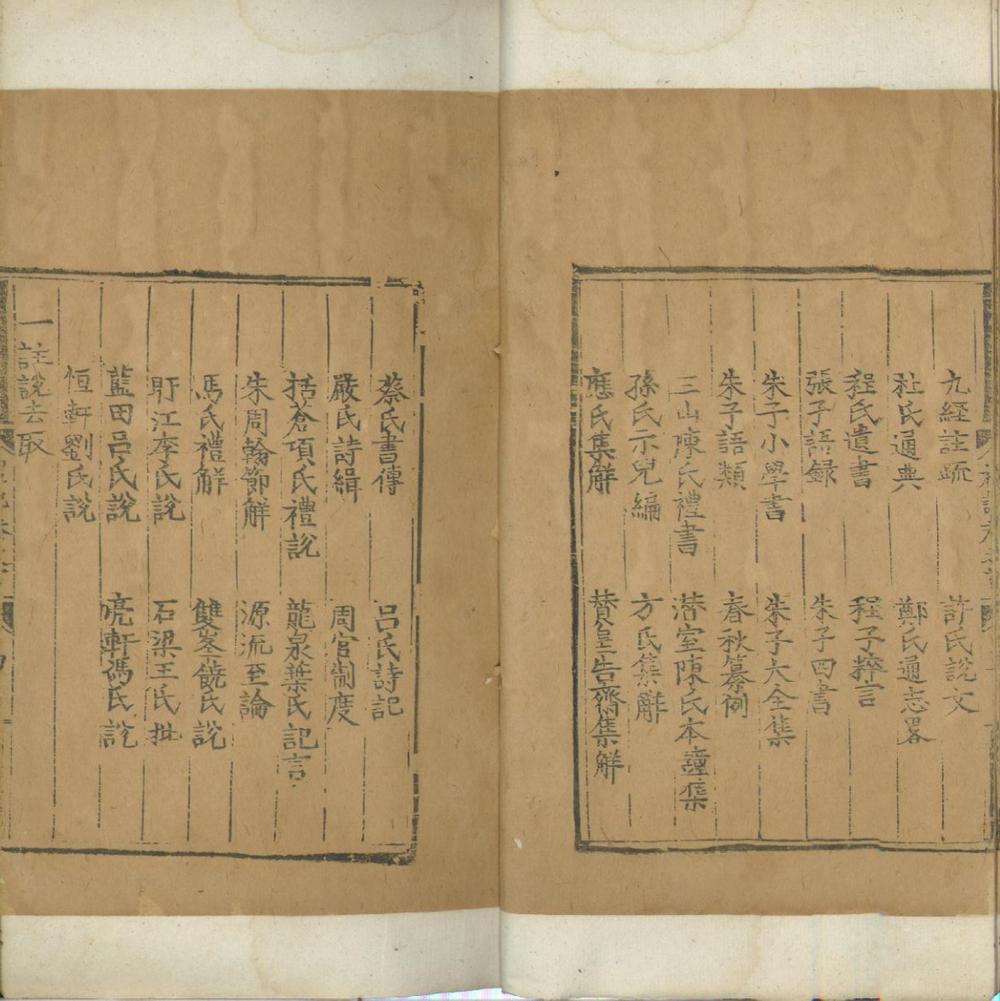 九経註疏 許氏說文
杜氏通典 鄭氏通志畧
程氏遺書 程子粹言
張子語録 朱子四書
朱子小學書 朱子大全集
朱子語類 春秋纂例
三山陳氏禮書 潜室陳氏木鐘集
孫氏示兒編 方氏集解
應氏集解 賛皇浩齋集解
蔡氏書傳 呂氏詩記
嚴氏詩緝 周官制度
括蒼項氏禮說 龍泉葉氏記言
朱周翰節解 源流至論
馮氏禮解 雙峯饒氏說
盱江李氏說 石梁王氏批
藍田呂氏說 亮軒馮氏說
恒軒劉氏說
一註說去取